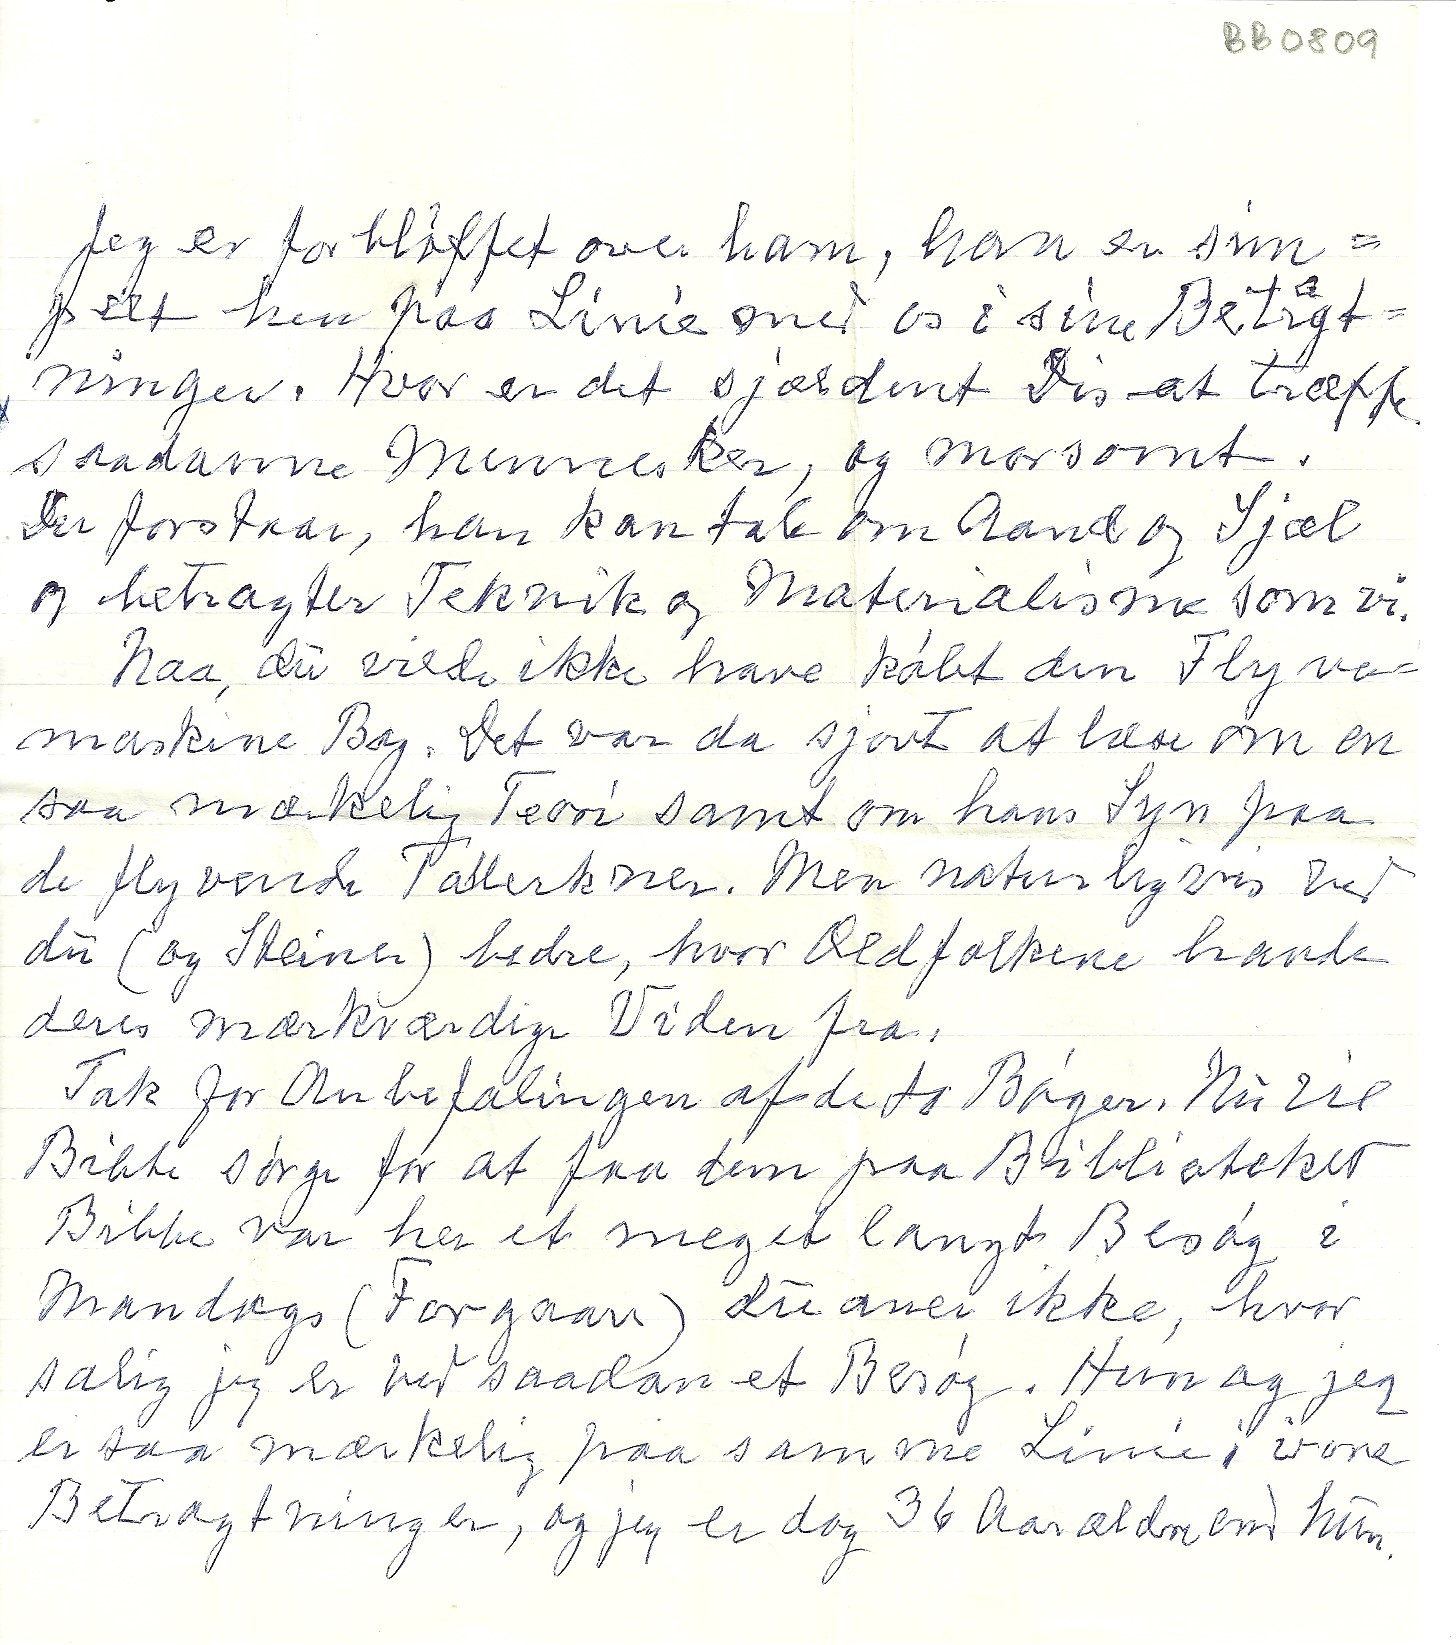 BB0809
Jeg er forbløffet over ham, han er sim=
pelt hen paa Linie med os i sine Betragt=
ninger. Hvor er det sjældent Dis at træffe
saadanne Mennesker, og morsomt.
Du forstaar, han kan tale om Aand og Sjæl
og betragter Teknik og Materialisme som vi.
Naa, du vilde ikke have købt den Flyve=
maskine Bog. Det var da sjovt at læse om en
saa mærkelig Teori samt om hans Syn paa
de flyvende Tallerkner. Men naturligvis ved
du (og Steiner) bedre, hvor Oldfolkene havde
deres mærkværdige Viden fra.
Tak for Anbefalingen af de to Bøger. Nu vil
Bibbe sørge for at faa dem paa Biblioteket
Bibbe var her et meget langt Besøg i
Mandags (Forgaars) Du aner ikke, hvor
salig jeg er ved saadan et Besøg. Hun og jeg
er saa mærkelig paa samme Linie i vore
Betragtninger, og jeg er dog 36 Aar ældre end hun.